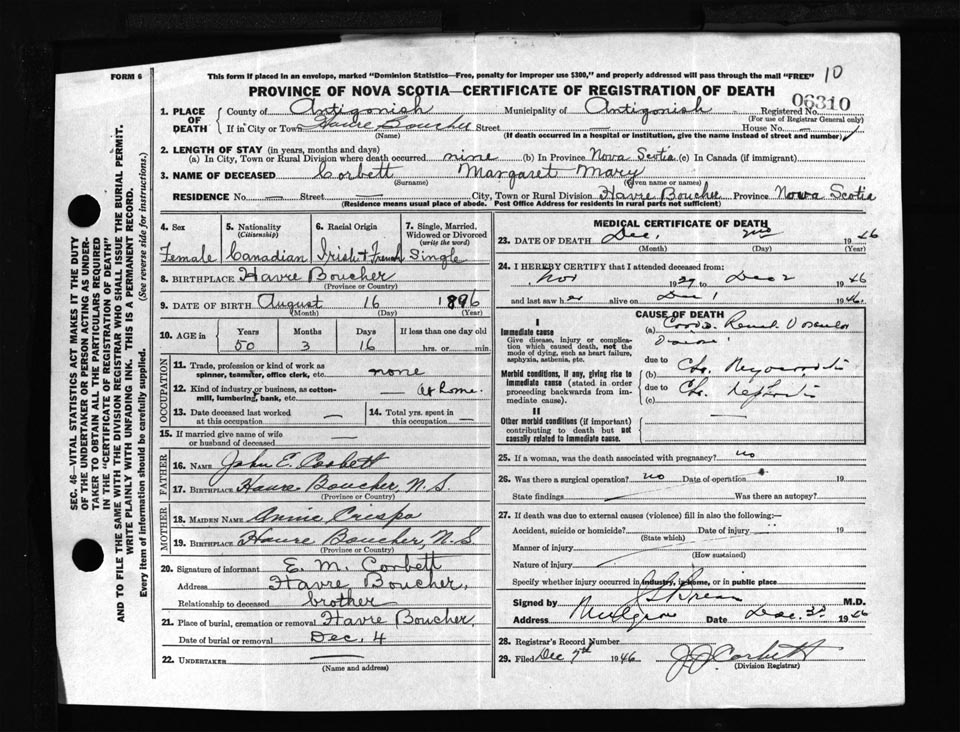 FORM 6
This form if placed in an envelope, marked "Dominion Statistics—Free, penalty for improper use $300," and properly addressed will pass through the mail "FREE"
10
PROVINCE OF NOVA SCOTIA—CERTIFICATE OF REGISTRATION OF DEATH
06310
SEC. 46—VITAL STATISTICS ACT MAKES IT THE DUTY
OF THE UNDERTAKER OR PERSON ACTING AS UNDER-
TAKER TO OBTAIN ALL THE PARTICULARS REQUIRED
IN THE "CERTIFICATE OF REGISTRATION OF DEATH"
AND TO FILE THE SAME WITH THE DIVISION REGISTRAR WHO SHALL ISSUE THE BURIAL PERMIT.
WRITE PLAINLY WITH UNFADING INK. THIS IS A PERMANENT RECORD.
Every item of information should be carefully supplied. (See reverse side for instructions.)
1. PLACE OF DEATH County of Antigonish Municipality of Antigonish Registered No.
(For use of Registrar General only)
If in City or Town Havre Boucher Street — House No. —
(Name) (If death occurred in a hospital or institution, give the name instead of street and number)
2. LENGTH OF STAY (in years, months and days)
(a) In City, Town or Rural Division where death occurred nine (b) In Province Nova Scotia (c) In Canada (if immigrant)
3. NAME OF DECEASED Corbett Margaret Mary
(Surname) (Given name or names)
RESIDENCE No. — Street — City, Town or Rural Division Havre Boucher Province Nova Scotia
(Residence means usual place of abode. Post Office Address for residents in rural parts not sufficient)
4. Sex
Female
5. Nationality
(Citizenship)
Canadian
6. Racial Origin
Irish + French
7. Single, Married,
Widowed or Divorced
(write the word)
Single
8. BIRTHPLACE Havre Boucher
(Province or Country)
9. DATE OF BIRTH August 16 1896
(Month) (Day) (Year)
10. AGE in Years Months Days If less than one day old
50 3 16 hrs. or min.
OCCUPATION
11. Trade, profession or kind of work as
spinner, teamster, office clerk, etc. none
12. Kind of industry or business, as cotton-
mill, lumbering, bank, etc. — at home.
13. Date deceased last worked
at this occupation —
14. Total yrs. spent in
this occupation —
15. If married give name of wife
or husband of deceased —
FATHER
16. NAME John E. Corbett
17. BIRTHPLACE Havre Boucher, N.S.
(Province or Country)
MOTHER
18. MAIDEN NAME Annie Crispo
19. BIRTHPLACE Havre Boucher, N.S
(Province or Country)
20. Signature of informant E. M. Corbett
Address Havre Boucher,
Relationship to deceased brother
21. Place of burial, cremation or removal Havre Boucher,
Date of burial or removal Dec. 4
22. UNDERTAKER —
(Name and address)
MEDICAL CERTIFICATE OF DEATH
23. DATE OF DEATH Dec. 2nd 1946
(Month) (Day) (Year)
24. I HEREBY CERTIFY that I attended deceased from:
Nov 1929 to Dec 2 1946
and last saw her alive on Dec 1 1946.
CAUSE OF DEATH
I
Immediate cause
Give disease, injury or complica-
tion which caused death, not the
mode of dying, such as heart failure,
asphyxia, asthenia, etc.
(a) Cardio Renal Vascular
Disease
due to
Morbid conditions, if any, giving rise to
immediate cause (stated in order
proceeding backwards from im-
mediate cause).
(b) Chr. Myocarditis
due to Chr. Nephritis
(c)
II
Other morbid conditions (if important)
contributing to death but not
causally related to immediate cause.
25. If a woman, was the death associated with pregnancy? no
26. Was there a surgical operation? no Date of operation 19
State findings Was there an autopsy?
27. If death was due to external causes (violence) fill in also the following:—
Accident, suicide or homicide? Date of injury 19
(State which)
Manner of injury
(How sustained)
Nature of injury
Specify whether injury occurred in industry, in home, or in public place
Signed by M.D.
Address Mulgrave Date Dec. 3d 1946
28. Registrar's Record Number
29. Filed Dec 7th 1946 J J Corbett
(Division Registrar)